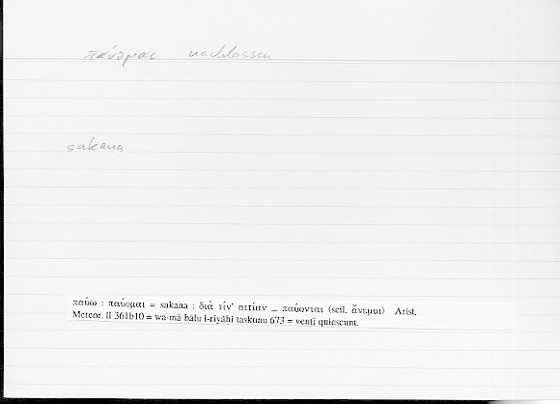 παύομαι nachlassen
sakana
παύω : παύομαι = sakana : διὰ τίν' αιτίαν ... παύονται (scil. ἄνεμοι) Arist.
Meteor. II 361b10 = wa-mā bālu l-riyāḥi taskunu 673 = venti quiescunt.